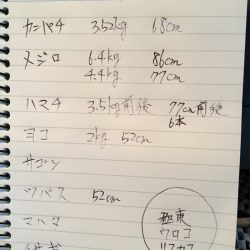 カンパチ 3.52kg 68cm
メジロ 6.4kg 86cm
4.4kg 77cm
ハマチ 3.5kg前後 77cm前後
6本
ヨコ 2kg 52cm
サゴシ
ツバス 52cm
マハタ
イサギ
極東
ウロコ